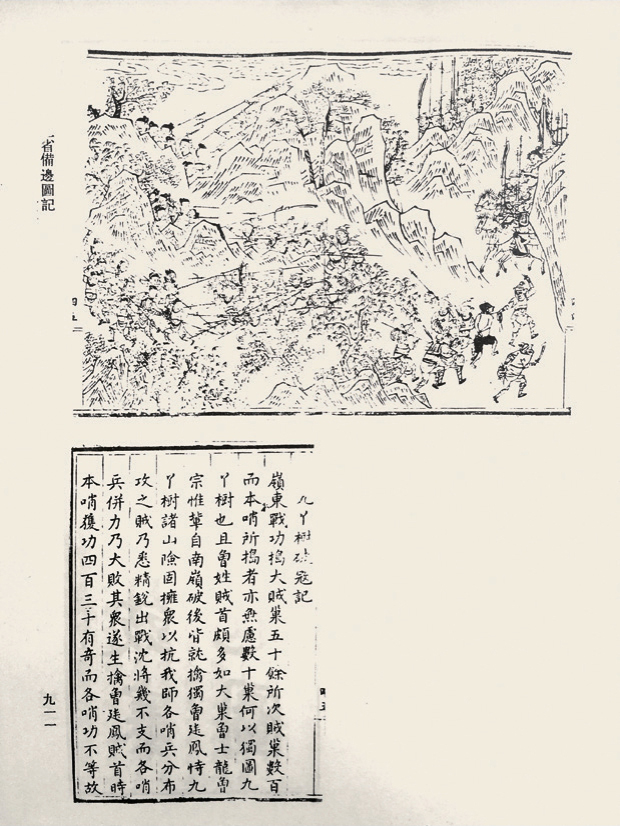 省備邊圖記
九丫樹破寇記
嶺東戰功搗大賊巢五十餘所次賊巢數百
而本哨所搗者亦無慮數十巢何以獨圖九
丫樹也且魯姓賊首頗多如大巢魯士龍魯
宗惟輩自南嶺破後皆就擒獨魯廷鳳恃九
丫樹諸山險固擁衆以抗我師各哨兵分布
攻之賊乃悉精銳出戰沈將幾不支而各哨
兵併力乃大敗其衆遂生擒魯廷鳳賊首時
本哨獲功四百三十有奇而各哨功不等故
九一一